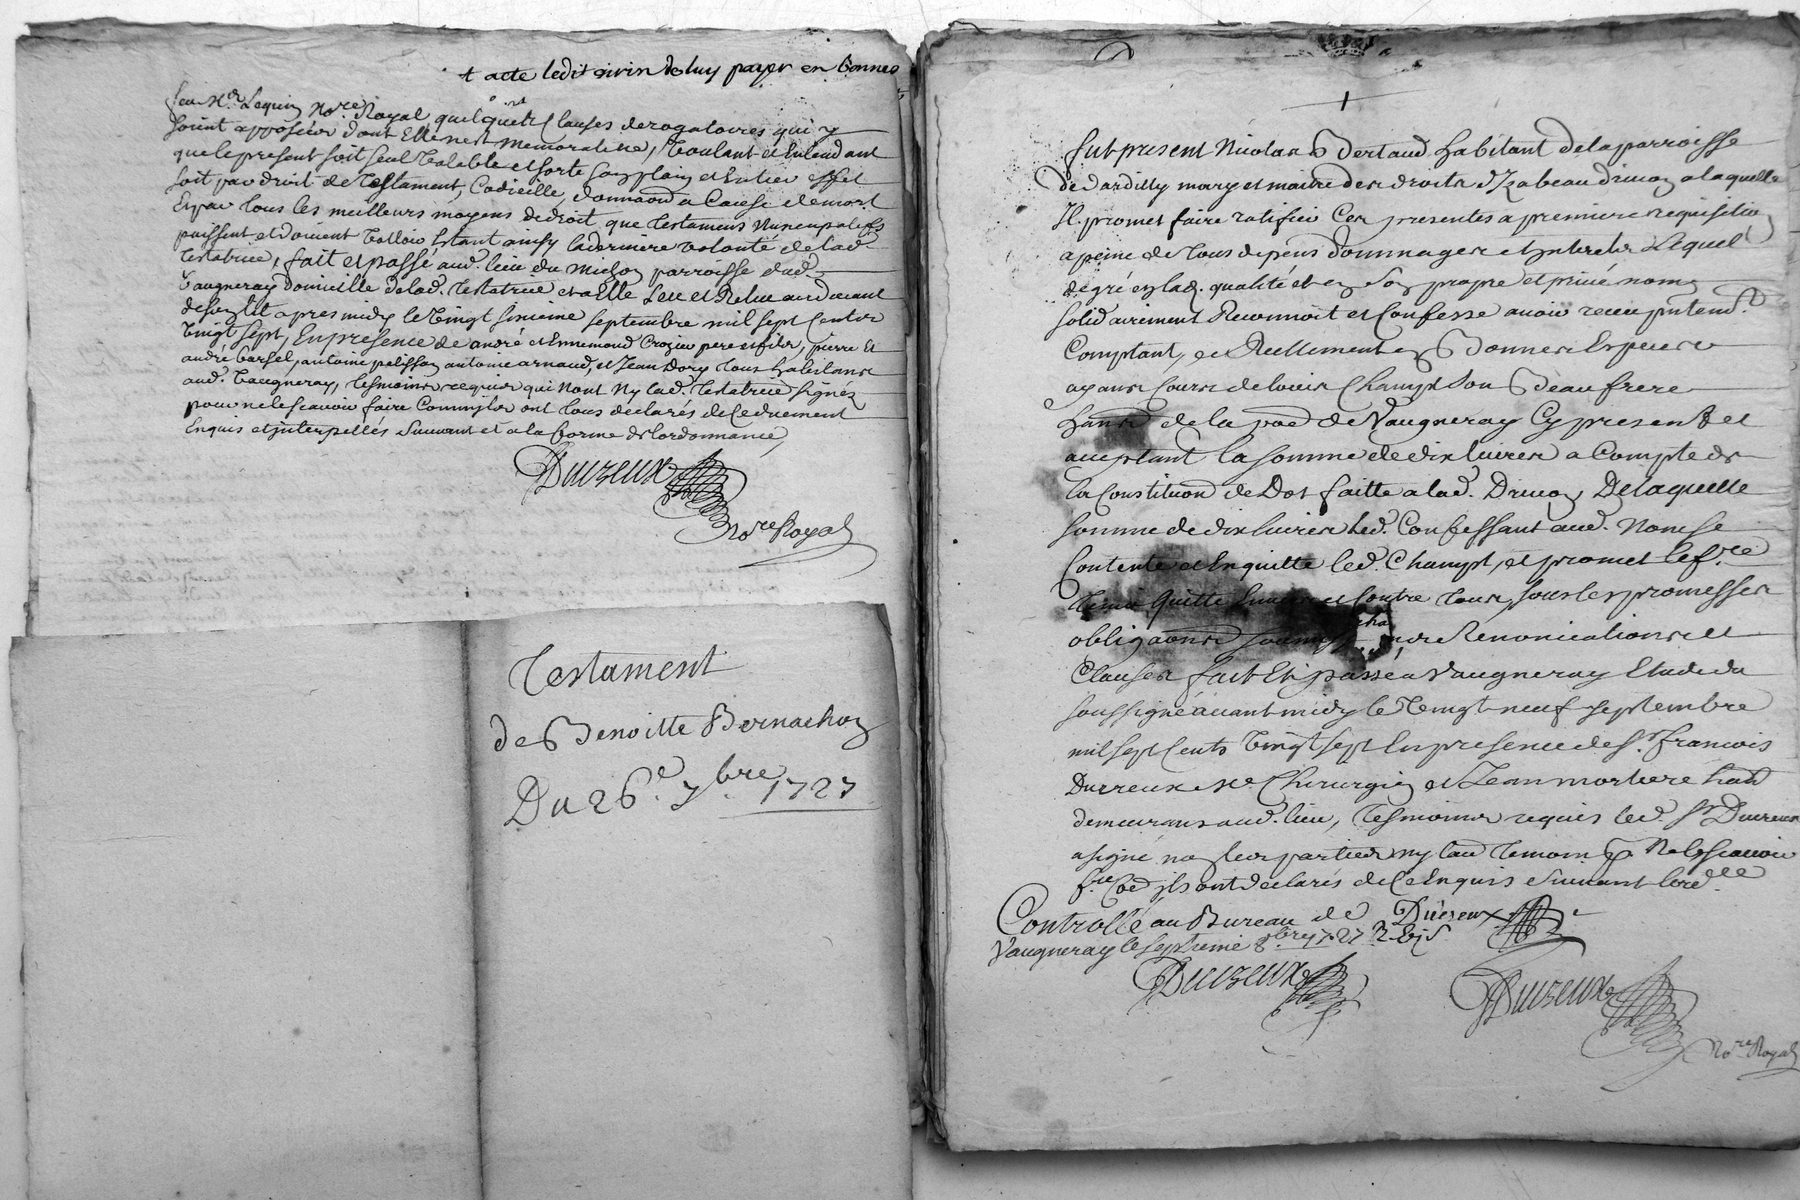 + acte ledit Girin de luy payer en bonnes
feu Me. Lequin Nore. Royal, quelques clauses derogatoires qui y
soient apposées dont Elle nest memorative, Voulant et Entendant
que le present soit seul Valable et sorte son plain et Entier effet
soit par droit de Testament, Codicille, donnaon a Cause de mort
Et par tous les meilleurs moyens de droit que Testamens Nuncupatifs
puissent et doivent Valloir Estant ainsy la derniere volonté de lad.
Testatrice, fait et passé aud. lieu du Michon parroisse dud.
Vaugneray domicille de lad. Testatrice et a Elle Leu et Releu audevant
de son lit apres midy le Vingt sixieme septembre mil sept Centz
Vingt sept, En presence de andré et Ennemond Crozier pere et fils, pierre Et
andré barsel, antoine pelisson antoine arnaud, et Jean Dory tous habitans
aud. Vaugneray, Tesmoins requis qui n'ont Ny lad. Testatrice signés
pour ne le scavoir faire Comm'ils ont tous declarés de Ce duement
Enquis et interpellés Suivant et a la forme de lordonnance,
Duizeux
Nore Royal
Testament
de Benoitte Bernachon
Du 26e. 7bre. 1727
fut present Nicolas Bertaud habitant de la parroisse
de dardilly mary et maitre des droits d'Izabeau Drivon a laquelle
Il promet faire ratifier Ces presentes a premiere requisition
a peine de tous depens dommages et Interets Lequel
de gré en lad. qualité et en son propre et privé nom
solidairement Reconnoit et Confesse avoir receu pntemt.
Comptant, et Reellement en Bonnes Especes
ayans Cours de louis Champt Son Beau frere
hant de la paoe de Vaugneray Cy present et
acceptant la somme de dix livres a Compte de
la Constituon de Dot faitte a lad. Drivon De laquelle
somme de dix livres led. Confessant aud. Nom se
Contente et En quitte led. Champt, et promet le fre
Tenir quitte Envers et Contre tous, sous les promesses
obligaons soumiss Renonciations et
Clauses fait Et passé a Vaugneray Etude du
soussigné avant midy le Vingt neuf septembre
mil sept Cents Vingt sept En presence de Sr. francois
Duzreux Me Chirurgien et Jean mortiere hant
demeurans aud. lieu, Tesmoins requis led. Sr Duizeux
a signé non les parties ny laut temoin p Ne le scavoir
fre Coe ils ont declarés de Ce Enquis Suivant lordce
Controllé au Bureau de Duizeux
Vaugneray le septieme 8bre 1727 R. 6 s
Duizeux Duizeux
Nore Royal